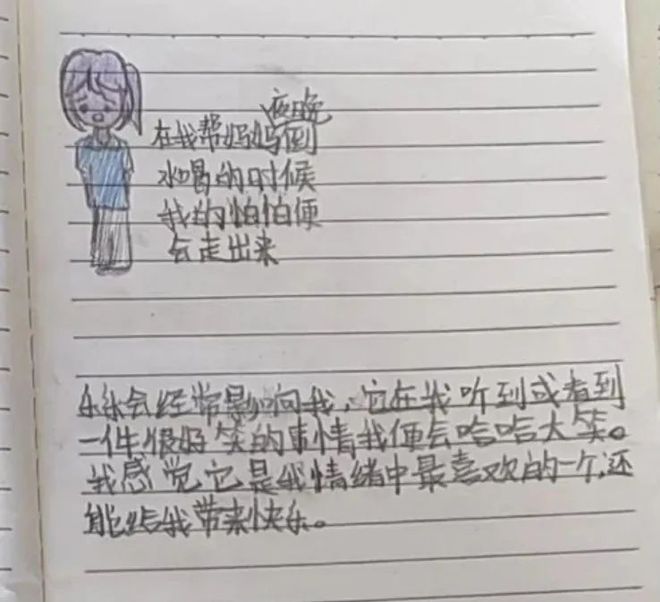 夜晚
在我帮妈妈倒
水喝的时候
我的怕怕便
会走出来
乐乐会经常影响我，它在我听到或看到
一件很好笑的事情我便会哈哈大笑。
我感觉它是我情绪中最喜欢的一个,还
能给我带来快乐。